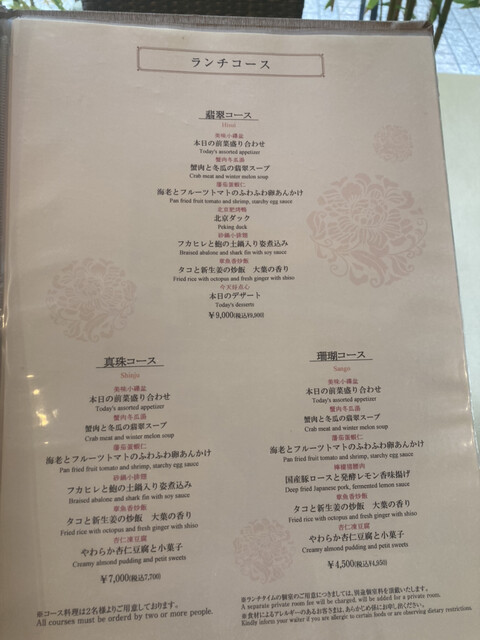 ランチコース
翡翠コース
Hisui
美味小碟盆
本日の前菜盛り合わせ
Today's assorted appetizer
蟹肉冬瓜湯
蟹肉と冬瓜の翡翠スープ
Crab meat and winter melon soup
蕃茄蛋蝦仁
海老とフルーツトマトのふわふわ卵あんかけ
Pan fried fruit tomato and shrimp, starchy egg sauce
北京肥烤鴨
北京ダック
Peking duck
砂鍋小排翅
フカヒレと鮑の土鍋入り姿煮込み
Braised abalone and shark fin with soy sauce
章魚香炒飯
タコと新生姜の炒飯 大葉の香り
Fried rice with octopus and fresh ginger with shiso
今天好点心
本日のデザート
Today's desserts
¥9,000(税込¥9,900)
真珠コース
Shinju
美味小碟盆
本日の前菜盛り合わせ
Today's assorted appetizer
蟹肉冬瓜湯
蟹肉と冬瓜の翡翠スープ
Crab meat and winter melon soup
蕃茄蛋蝦仁
海老とフルーツトマトのふわふわ卵あんかけ
Pan fried fruit tomato and shrimp, starchy egg sauce
砂鍋小排翅
フカヒレと鮑の土鍋入り姿煮込み
Braised abalone and shark fin with soy sauce
章魚香炒飯
タコと新生姜の炒飯 大葉の香り
Fried rice with octopus and fresh ginger with shiso
杏仁凍豆腐
やわらか杏仁豆腐と小菓子
Creamy almond pudding and petit sweets
¥7,000(税込7,700)
※コース料理は2名様よりご用意しております。
All courses must be orderd by two or more people.
珊瑚コース
Sango
美味小碟盆
本日の前菜盛り合わせ
Today's assorted appetizer
蟹肉冬瓜湯
蟹肉と冬瓜の翡翠スープ
Crab meat and winter melon soup
蕃茄蛋蝦仁
海老とフルーツトマトのふわふわ卵あんかけ
Pan fried fruit tomato and shrimp, starchy egg sauce
檸檬溜腰肉
国産豚ロースと発酵レモン香味揚げ
Deep fried Japanese pork, fermented lemon sauce
章魚香炒飯
タコと新生姜の炒飯 大葉の香り
Fried rice with octopus and fresh ginger with shiso
杏仁凍豆腐
やわらか杏仁豆腐と小菓子
Creamy almond pudding and petit sweets
¥4,500(税込¥4,950)
※ランチタイムの個室のご用意につきましては、別途個室料を頂戴いたします。
A separate private room fee will be charged, will be added for a private room.
※食材によるアレルギーのあるお客さまは、あらかじめ係にお申し出ください。
Kindly inform your waiter if you are allergic to certain foods or are observing dietary restrictions.